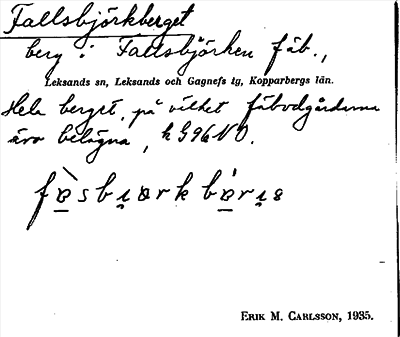 Fallsbjörkberget
berg i Fallsbjörken fäb.,
Leksands sn, Leksands och Gagnefs tg, Kopparbergs län.
Hela berget, på vilket fäbodgårdarna
äro belägna, k G96 NO.
ERIK M. CARLSSON, 1935.